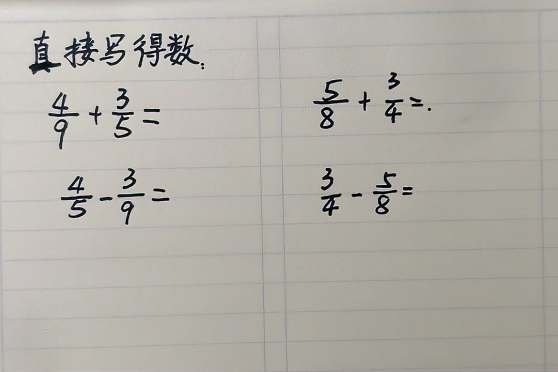 直接写得数.
4/9 + 3/5 = 5/8 + 3/4 =.
4/5 - 3/9 = 3/4 - 5/8 =